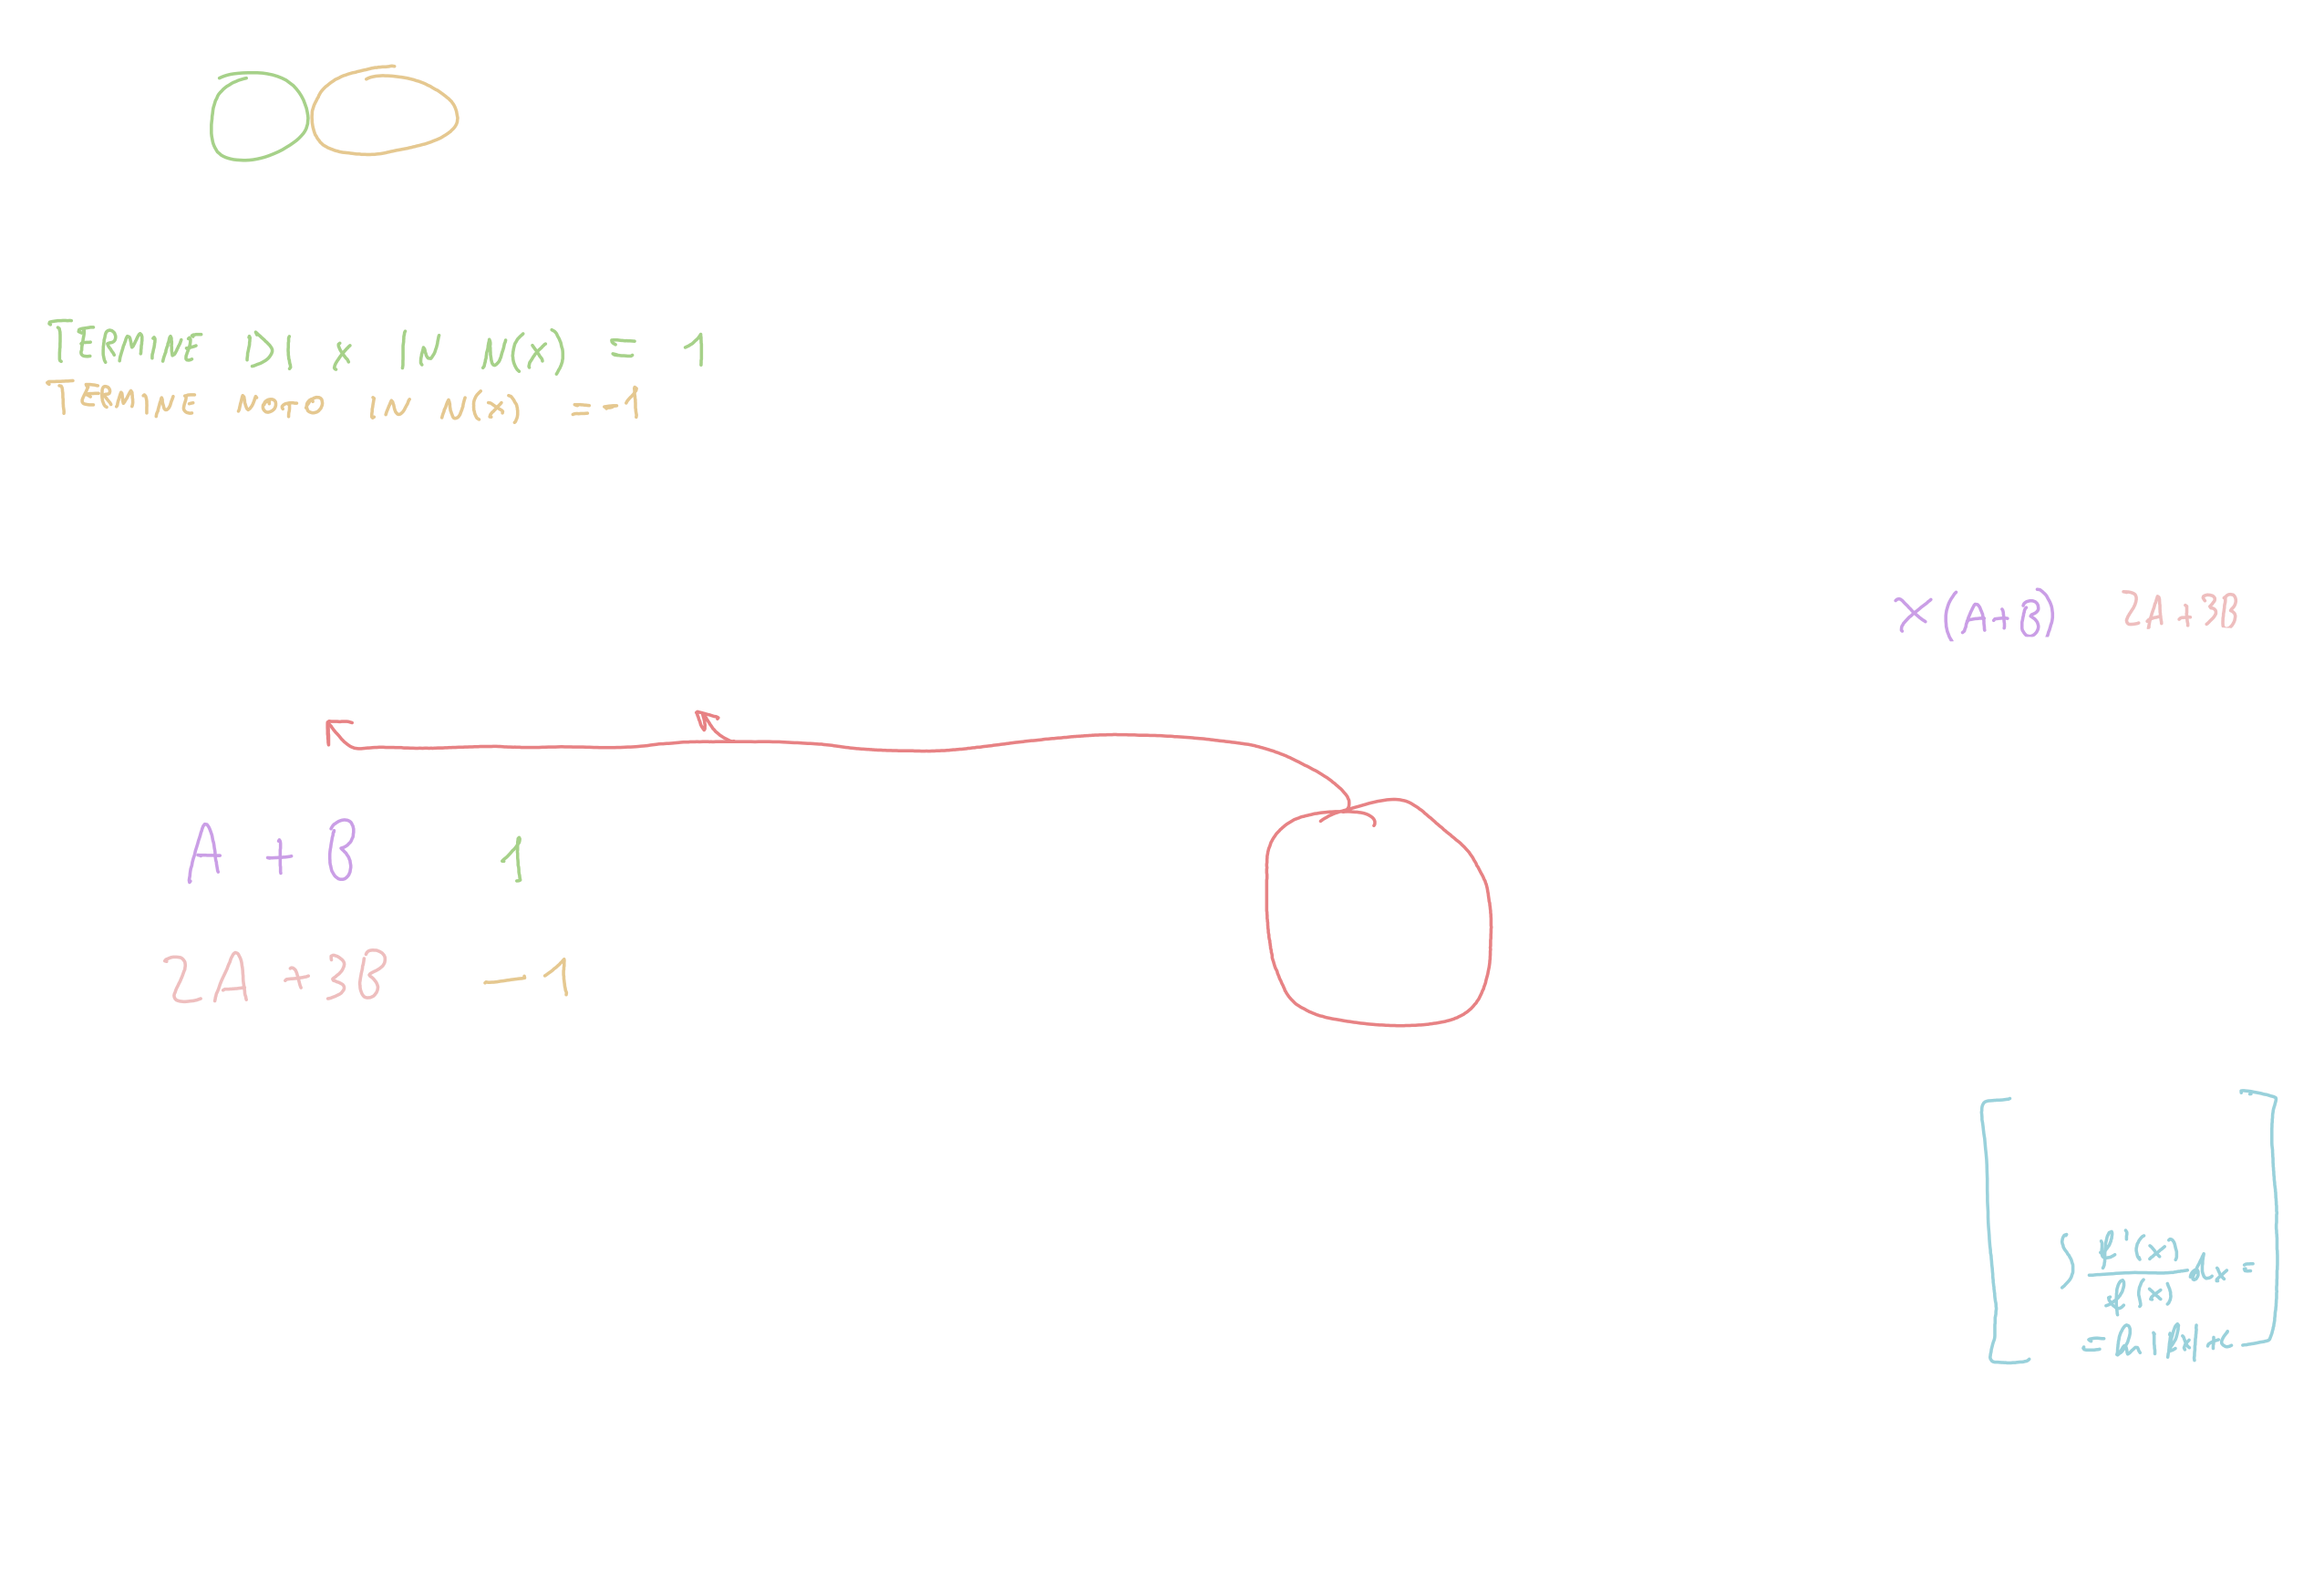 TERMINE DI x IN N(x) = 1
TERMINE NOTO IN N(x) = -1
x(A+B) 2A+3B
A + B 1
2A + 3B -1
∫ f'(x)/f(x) dx =
= ln|fx|+c